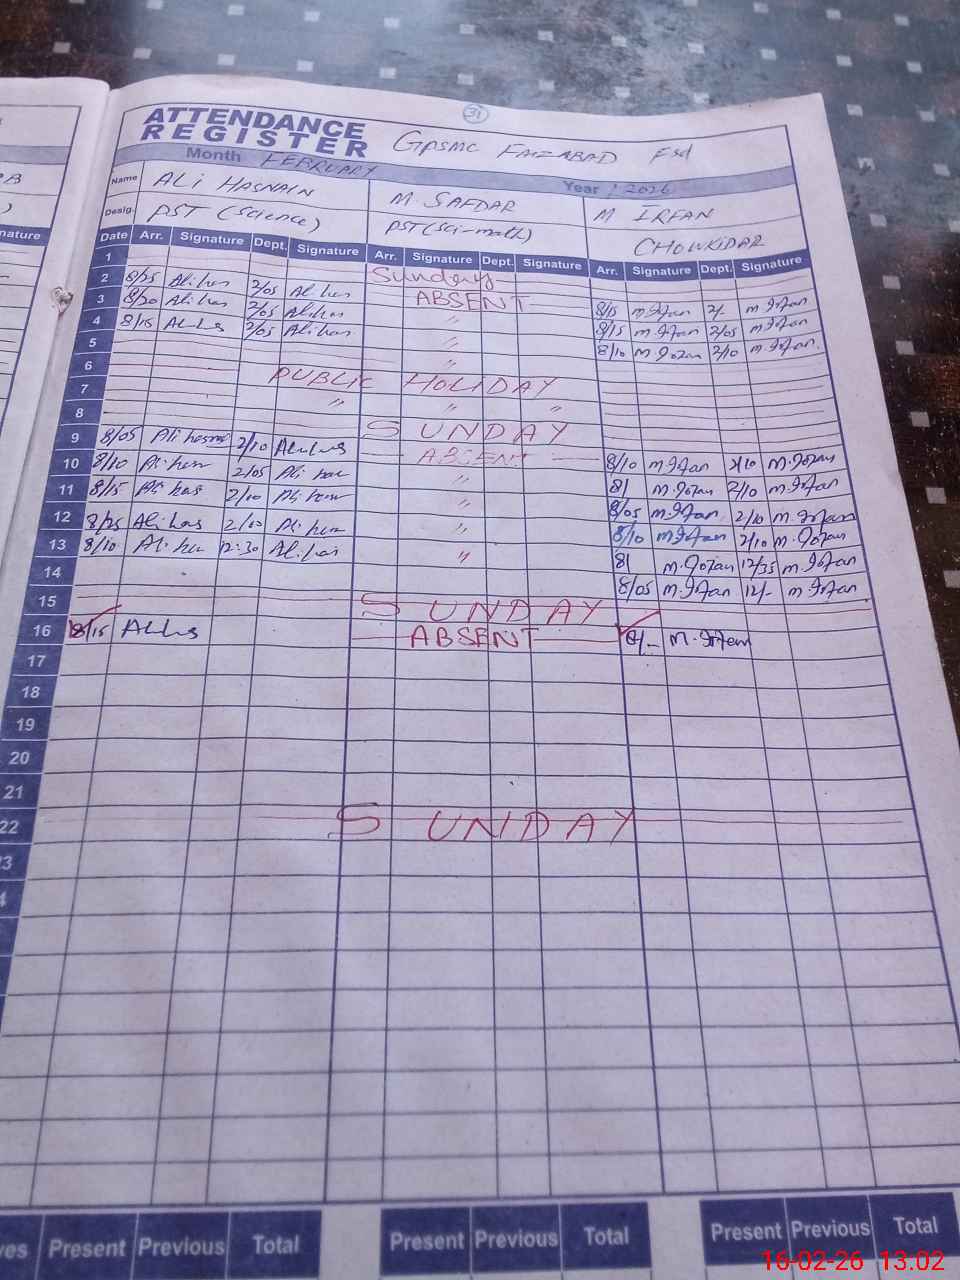 31
ATTENDANCE
REGISTER
GPSMC FAIZABAD Fsd
Month FEBRUARY Year : 2026
Name ALi HASNAIN M. SAFDAR M IRFAN
Desig. PST (Science) PST (Sci-math) CHOWKIDAR
Date Arr. Signature Dept. Signature Arr. Signature Dept. Signature Arr. Signature Dept. Signature
1 Sunday
2 8/25 Ali has 2/05 Ali has ABSENT 8/15 m.Irfan 2/- m.Irfan
3 8/20 Ali has 2/05 Ali has " 8/15 m.Irfan 2/05 m.Irfan
4 8/15 Ali has 2/05 Ali has " 8/10 m.Irfan 2/10 m.Irfan
5 "
6 PUBLIC HOLIDAY
7 " " "
8 SUNDAY
9 8/05 Ali hasn 2/10 Ali has ABSENT 8/10 m.Irfan 2/10 m.Irfan
10 8/10 Ali has 2/05 Ali has " 8/ m.Irfan 2/10 m.Irfan
11 8/15 Ali has 2/10 Ali has " 8/05 m.Irfan 2/10 m.Irfan
12 8/25 Ali has 2/10 Ali has " 8/10 m.Irfan 2/10 m.Irfan
13 8/10 Ali has 12:30 Ali has " 8/ m.Irfan 12/35 m.Irfan
14 8/05 m.Irfan 12/- m.Irfan
15 SUNDAY
16 8/15 Ali has ABSENT 8/- M.Irfan
17
18
19
20
21
22 SUNDAY
Present Previous Total Present Previous Total Present Previous Total
16-02-26 13.02